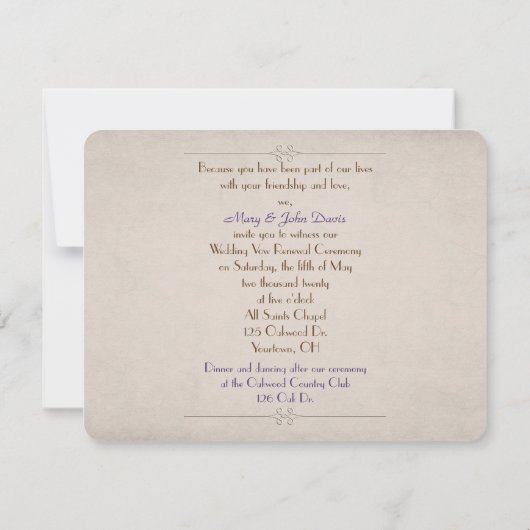 Because you have been part of our lives
with your friendship and love,
we,
Mary & John Davis
invite you to witness our
Wedding Vow Renewal Ceremony
on Saturday, the fifth of May
two thousand twenty
at five o'clock
All Saints Chapel
125 Oakwood Dr.
Yourtown, OH
Dinner and dancing after our ceremony
at the Oakwood Country Club
126 Oak Dr.